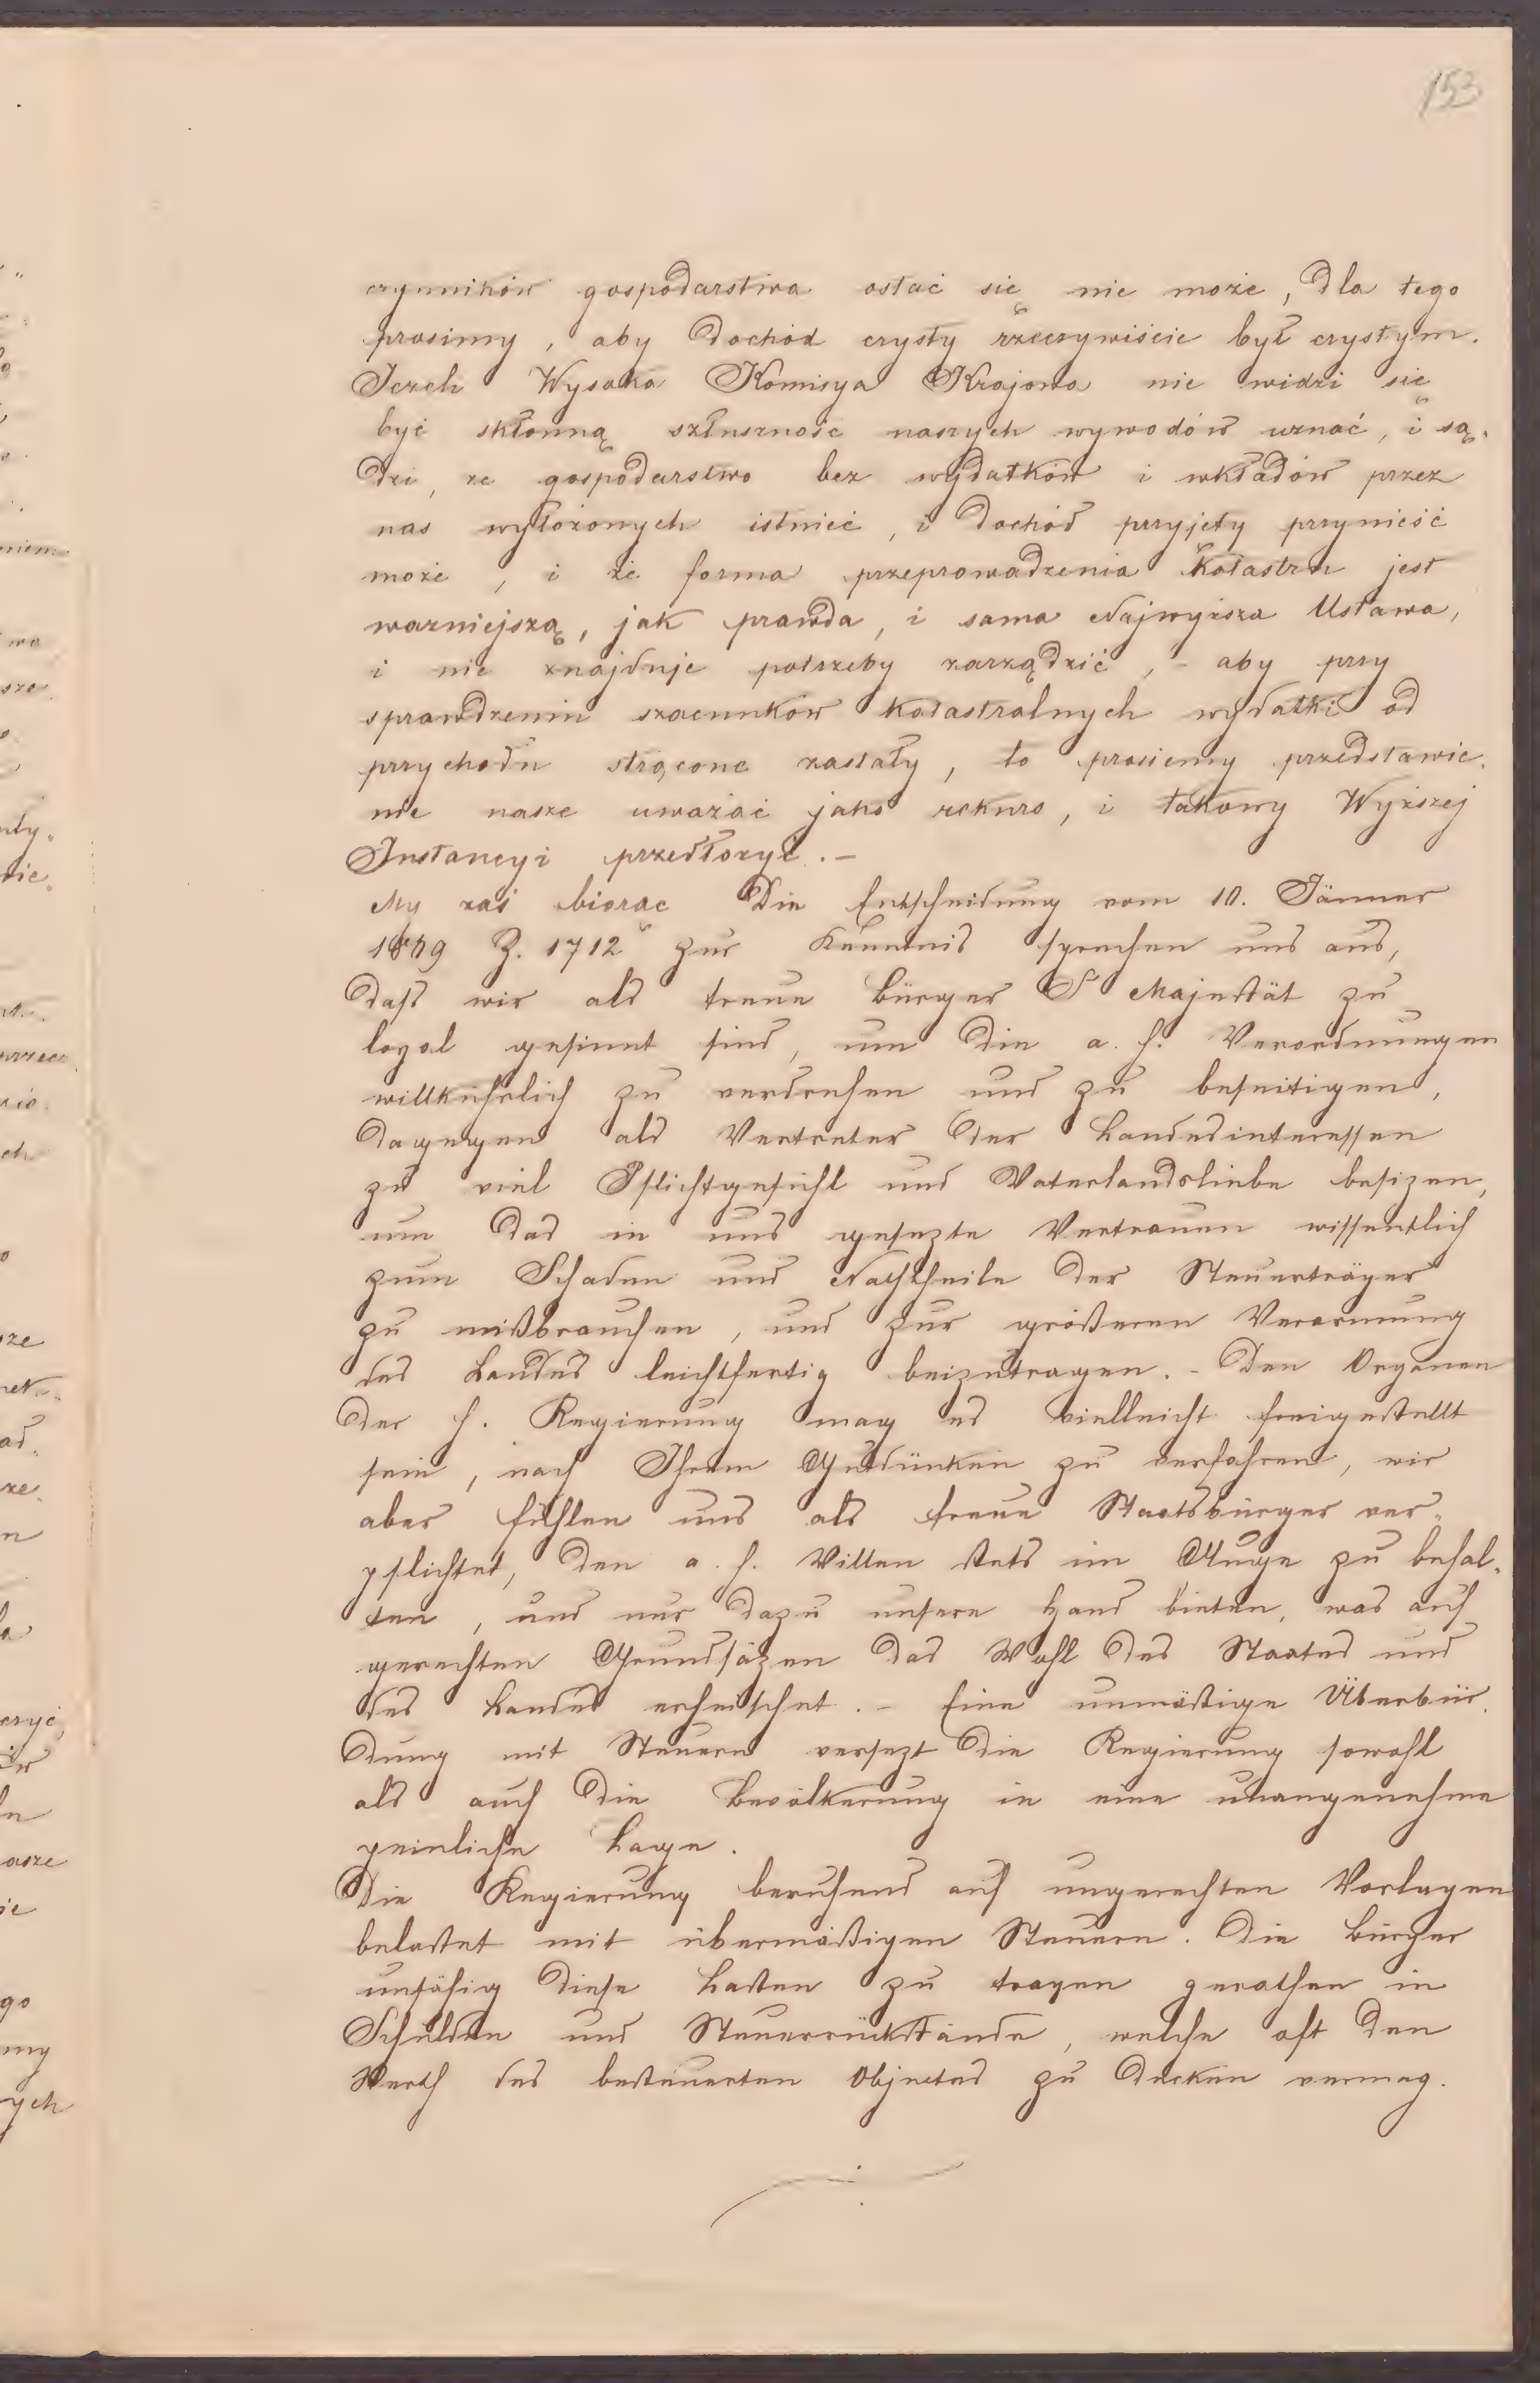 153
czynników gospodarstwa ostać się nie może, dla tego
prosimy, aby dochód czysty rzeczywiście był czystym.
Jezeli Wysoka Komisya Krajowa nie widzi się
być skłonną szłuszność naszych wywodów uznać, i są„
dzi, ze gospodarstwo bez wydatków i wkładów przez
nas wyłożonych istnieć, i dochód przyjęty przynieść
może, i że forma przeprowadzenia katastru jest
wazniejszą, jak prawda, i sama Najwyższa Ustawa,
i nie znajduje potrzeby zarządzić, – aby przy
sprawdzeniu szacunków katastralnych wydatki od
przychodu strącone zastały, to prosiemy przedstawie„
nie nasze uważać jako rekurs, i takowy Wyższej
Instancyi przedłozyć. –
My zaś biorąc die Entscheidung vom 10. Jänner
1879 Z. 1712 zur Kenntnis sprechen uns aus,
daß wir als treue Bürger Sr Majestät zu
loyal gesinnt sind, um die a. h. Verordnungen
willkührlich zu verdrehen und zu beseitigen,
dagegen als Vertreter der Landesinteressen
zu viel Pflichtgefühl und Vaterlandsliebe besizen,
um das in uns gesezte Vertrauen wissentlich
zum Schaden und Nachtheile der Steuerträger
zu mißbrauchen, und zur größeren Verarmung
des Landes leichtfertig beizutragen. – Den Organen
der h. Regierung mag es vielleicht freigestellt
sein, nach Ihrem Gutdünken zu verfahren, wir
aber fühlen uns als treue Staatsbürger ver„
pflichtet, den a. h. Willen stets im Auge zu behal„
ten, und nur dazu unsere Hand bieten, was auf
gerechten Grundsäzen das Wohl des Staates und
des Landes erheischet. – Eine unmäßige Überbür„
dung mit Steuern versezt die Regierung sowohl
als auch die Bevölkerung in eine unangenehme
peinliche Lage.
Die Regierung beruhend auf ungerechten Vorlagen
belastet mit übermäßigen Steuern. Die Bürger
unfähig diese Lasten zu tragen gerathen in
Schulden und Steuerrückstände, welche oft den
Werth des besteuerten Objectes zu decken vermag.